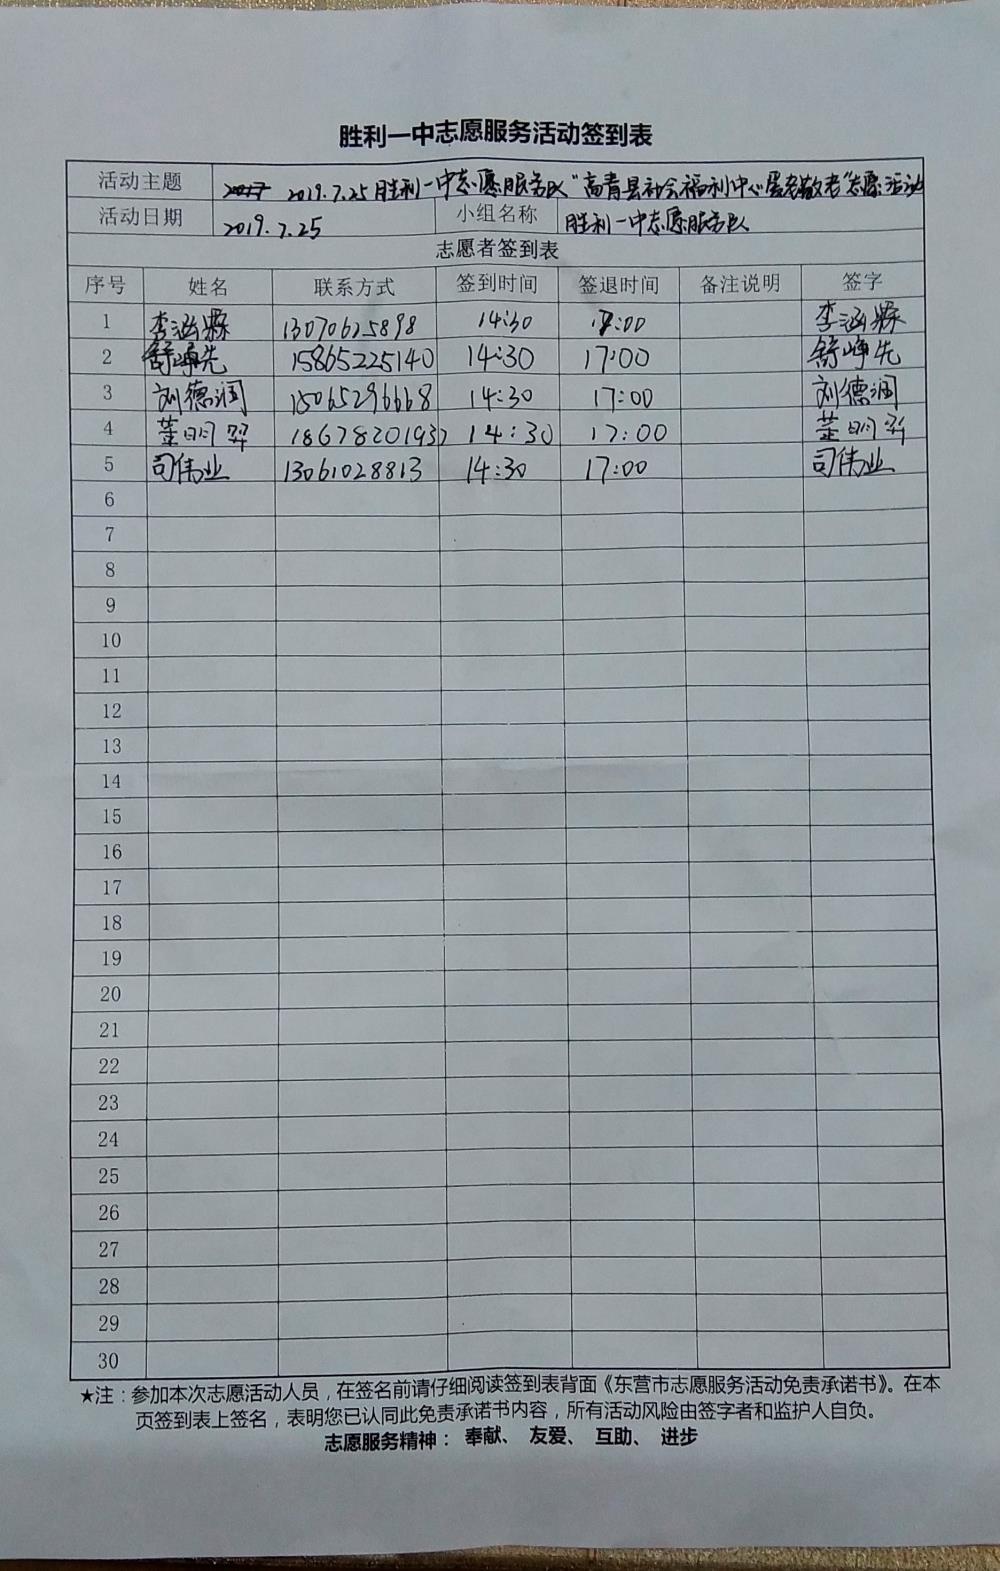 胜利一中志愿服务活动签到表
活动主题 2019.7.25胜利一中志愿服务队“高青县社会福利中心爱老敬老”志愿活动
活动日期 2019.7.25 小组名称 胜利一中志愿服务队
志愿者签到表
序号 姓名 联系方式 签到时间 签退时间 备注说明 签字
1 李涵 13070625898 14:30 17:00 李涵
2 舒峥先 15865225140 14:30 17:00 舒峥先
3 刘德润 15065296668 14:30 17:00 刘德润
4 董明羿 18678201937 14:30 17:00 董明羿
5 司伟业 13061028813 14:30 17:00 司伟业
6
7
8
9
10
11
12
13
14
15
16
17
18
19
20
21
22
23
24
25
26
27
28
29
30
★注：参加本次志愿活动人员，在签名前请仔细阅读签到表背面《东营市志愿服务活动免责承诺书》。在本
页签到表上签名，表明您已认同此免责承诺书内容，所有活动风险由签字者和监护人自负。
志愿服务精神： 奉献、 友爱、 互助、 进步